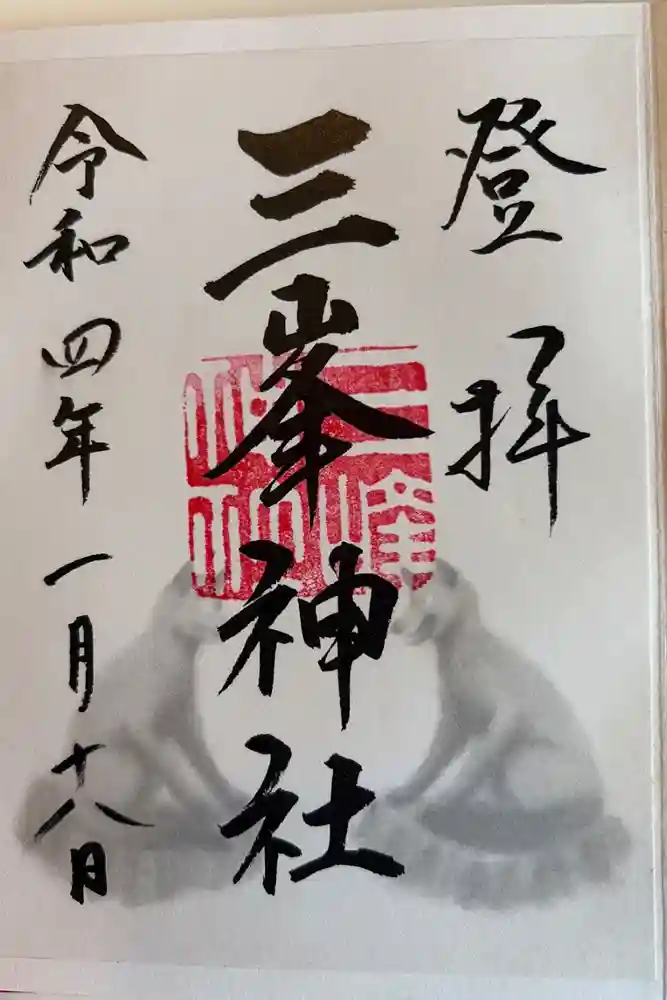 登拝
三峯神社
令和四年一月十八日